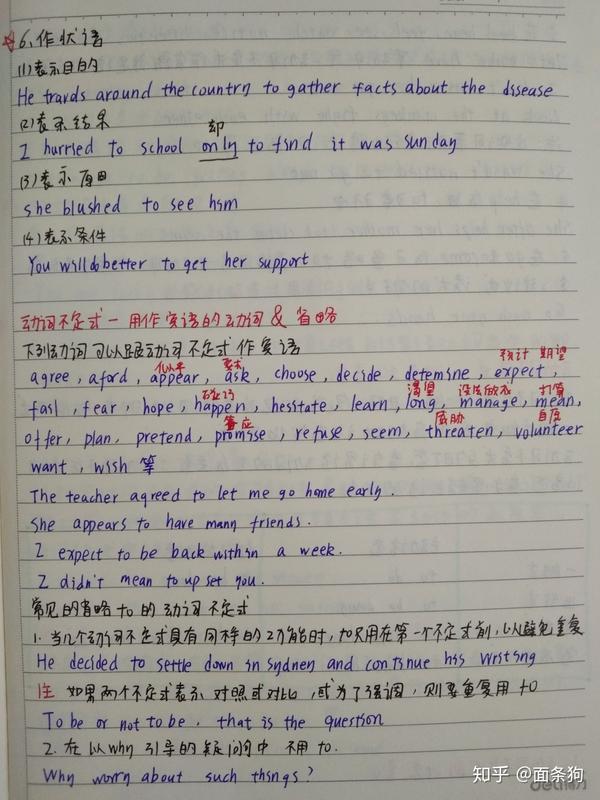 6、作状语
(1)表示目的
He travels around the country to gather facts about the disease
(2)表示结果
却
I hurried to school only to find it was sunday
(3)表示原因
she blushed to see him
(4)表示条件
You will do better to get her support
动词不定式－用作宾语的动词 & 省略
下列动词可以跟动词不定式作宾语
预计 期望
似乎 要求
agree , aford , appear , ask , choose , decide , detemine , expect ,
碰巧 渴望 设法做成 打算
fail , fear , hope , happen , hesitate , learn , long , manage , mean ,
答应 威胁 自愿
offer , plan , pretend , promise , refuse , seem , threaten , volunteer
want , wish 等
The teacher agreed to let me go home early .
She appears to have many friends .
I expect to be back within a week .
I didn't mean to upset you .
常见的省略 to 的动词不定式
1. 当几个动词不定式具有同样的功能时，to只用在第一个不定式前，以避免重复
He decided to settle down in sydney and continue his writing
注 如果两个不定式表示对照或对比，或为了强调，则要重复用 to
To be or not to be , that is the question
2. 在以why引导的疑问句中 不用 to.
Why worry about such things ?
知乎 @面条狗
deli得力